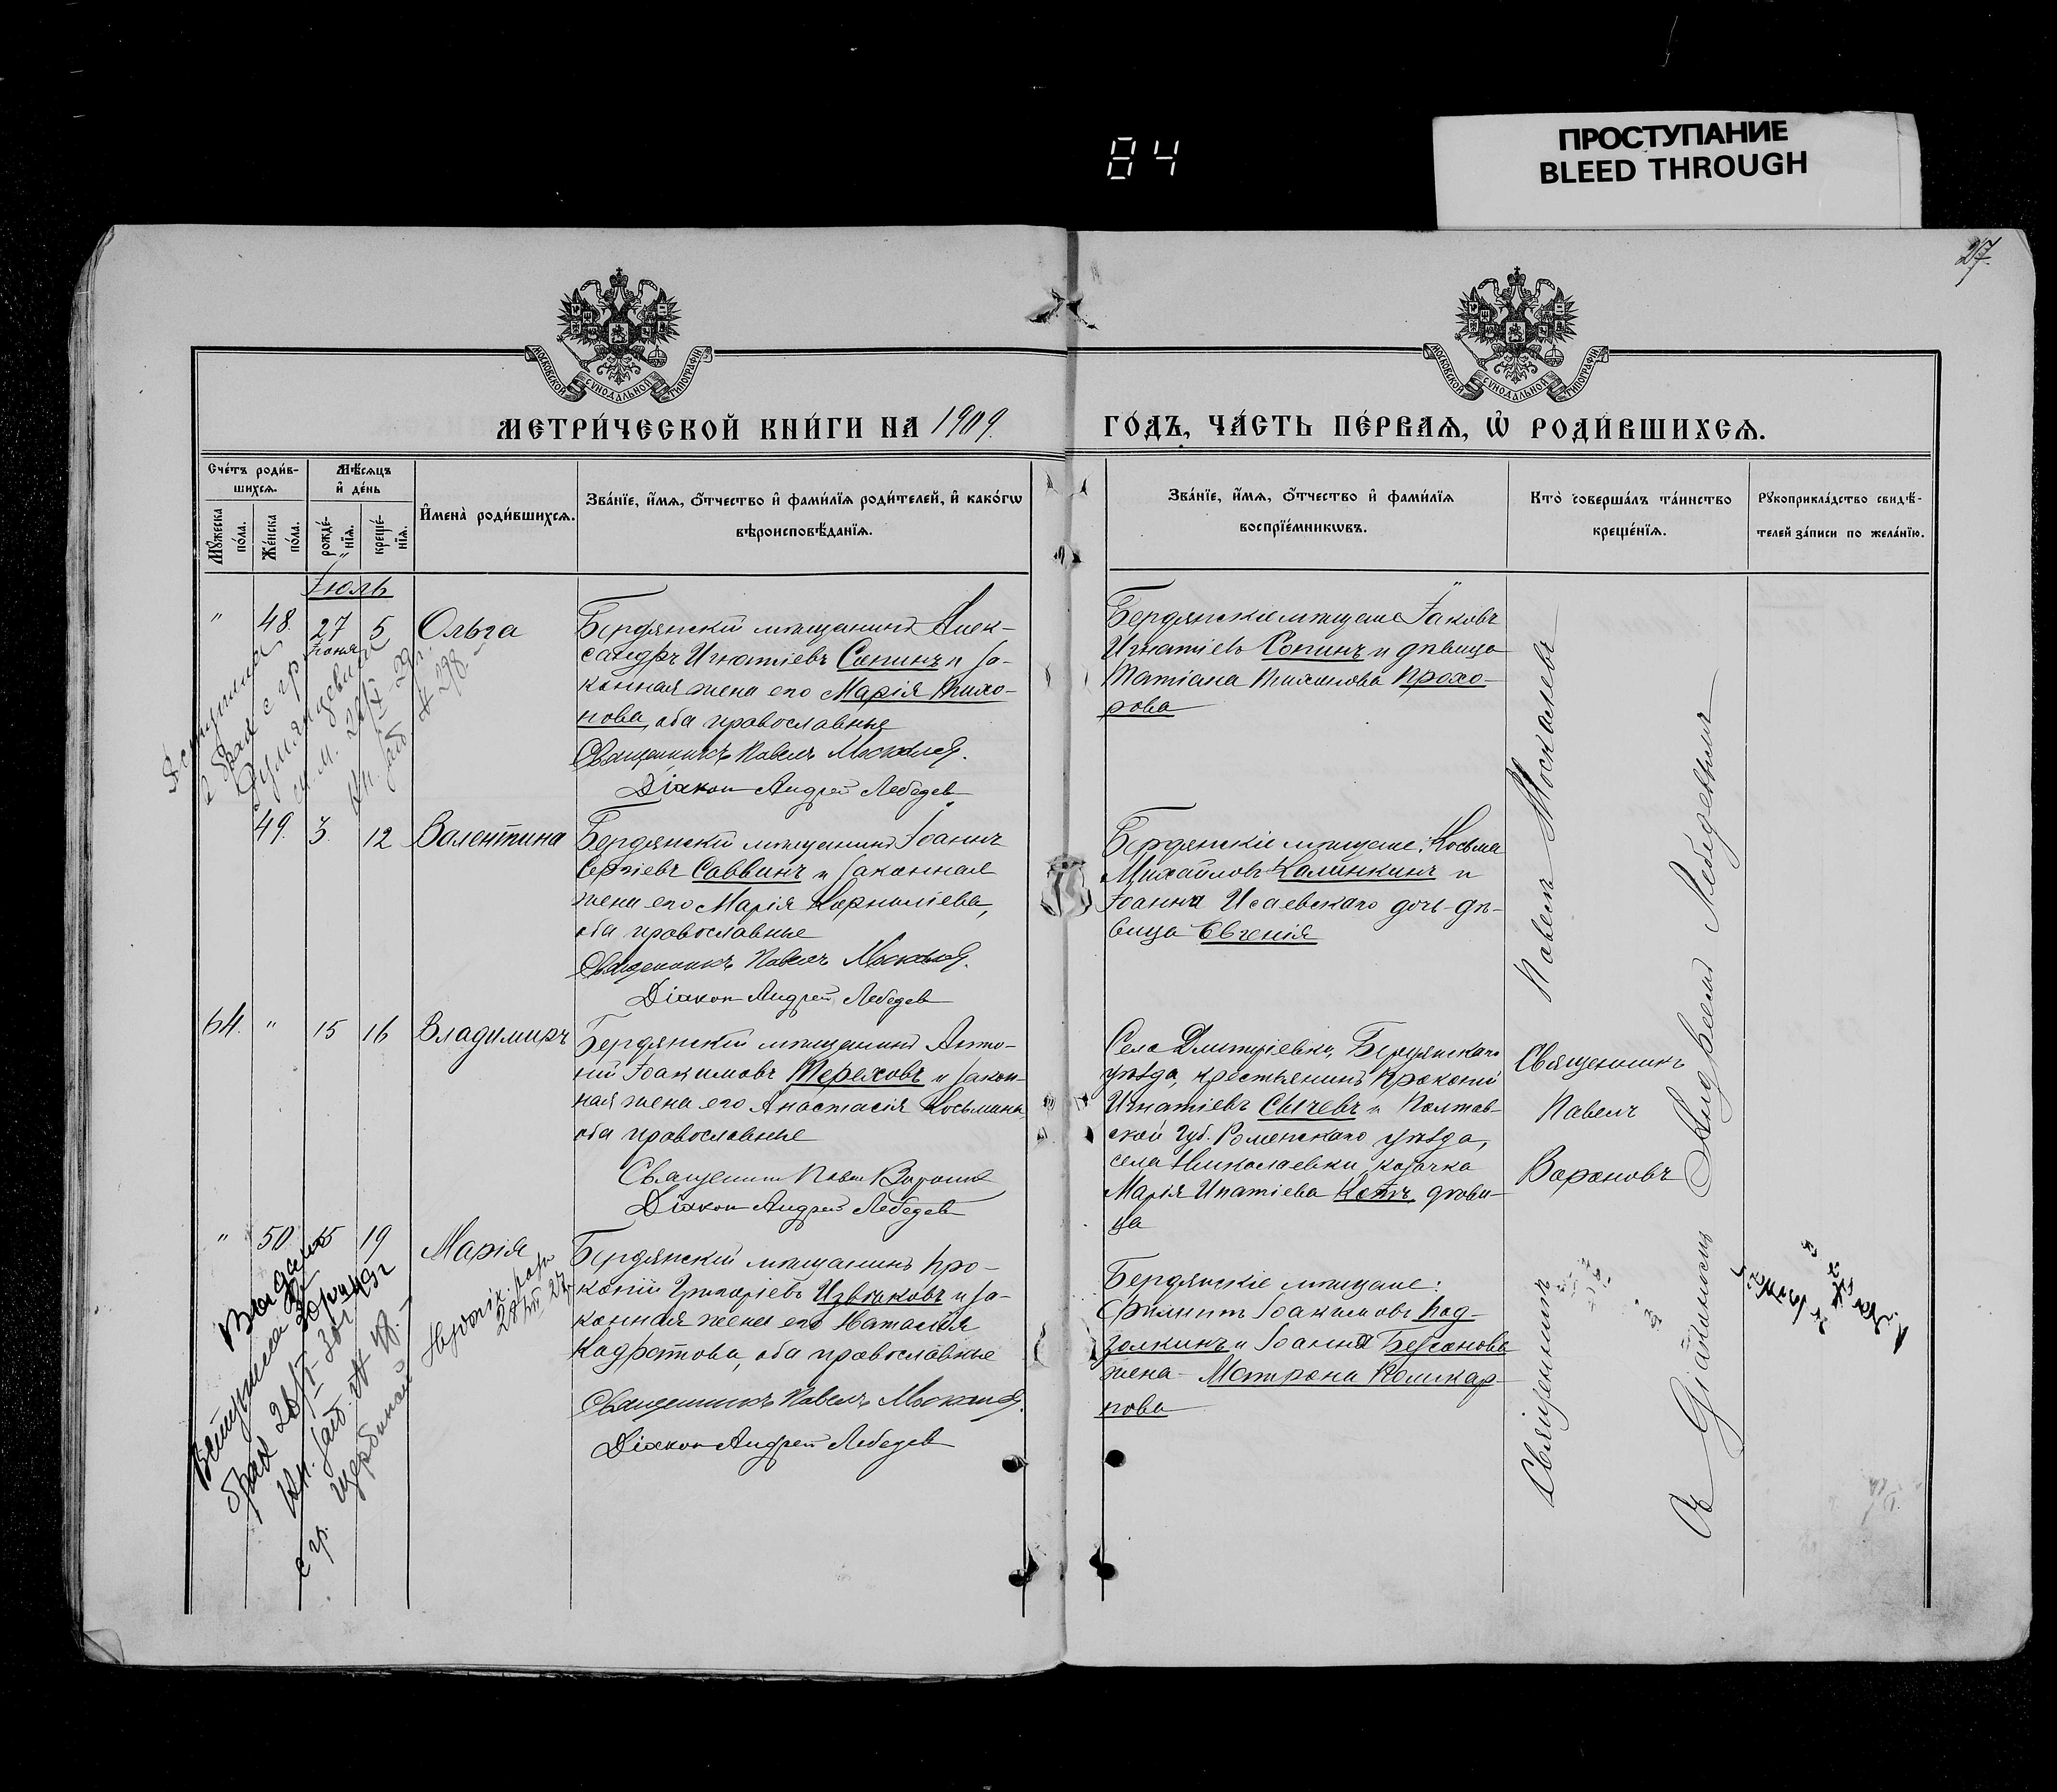 84
ПРОСТУПАНИЕ
BLEED THROUGH
27
МОСКОВСКОЙ СУНОДАЛЬНОЙ ТИПОГРАФІИ
МОСКОВСКОЙ СУНОДАЛЬНОЙ ТИПОГРАФІИ
МЕТРИ́ЧЕСКОЙ КНИ́ГИ НА 1909.
ГО́ДЪ, ЧА́СТЬ ПЕ́РВАЯ, Ѡ РОДИ́ВШИХСЯ.
Сче́тъ роди́в-
шихся.
Мꙋ́жеска
по́ла.
Же́нска
по́ла.
Мѣ́сяцъ
и҆ де́нь
рожде́-
нїѧ.
креще́-
нїѧ.
И҆мена̀ роди́вшихсѧ.
Зва́нїе, и҆́мѧ, ѻ҆́тчество и҆ фами́лїѧ роди́телей, и҆ како́гѡ
вѣроисповѣ́данїѧ.
Зва́нїе, и҆́мѧ, ѻ҆́тчество и҆ фами́лїѧ
воспрїе́мникѡвъ.
Кто̀ соверша́лъ та́инство
креще́нїѧ.
Рꙋкоприкла́дство свидѣ́-
телей за́писи по жела́нїю.
Іюль
" 48. 27 5 Ольга
Іюня
Бердянскій мѣщанинъ Алек-
сандръ Игнатіевъ Сопинъ и за-
конная жена его Марія Тихо-
нова, оба православные
Священникъ Павелъ Москалев.
Діакон Андрей Лебедев
Бердянскіе мѣщане Іаковъ
Игнатіевъ Сопинъ и дѣвица
Татіана Тихонова Прохо-
рова
Вступила
в брак с гр.
49. 3. 12 Валентина
Бердянскій мѣщанинъ Іоаннъ
Сергіевъ Саввинъ и законная
жена его Марія Корниліева,
оба православные
Священникъ Павелъ Москалев.
Діакон Андрей Лебедев
Бердянскіе мѣщане: Косьма
Михайловъ Калинкинъ и
Іоанна Исаевскаго дочь-дѣ-
вица Евгенія
64. " 15 16 Владимиръ
Бердянскій мѣщанинъ Анто-
ній Іоакимовъ Тереховъ и закон-
ная жена его Анастасія Косьмина
оба православные
Священник Павел Воронов
Діакон Андрей Лебедев
Села Дмитріевки, Бердянскаго
уѣзда, крестьянинъ Прокопій
Игнатіевъ Сычевъ и Полтав-
ской губ. Роменскаго уѣзда,
села Николаевки козачка
Марія Ипатіева дѣви-
ца
Священникъ
Павелъ
Вороновъ
" 50 15 19 Марія
Бердянскій мѣщанинъ Про-
копій Григоріевъ Извѣковъ и за-
конная жена его Наталія
Кодратова, оба православные
Священникъ Павелъ Москалев.
Діакон Андрей Лебедев
Бердянскіе мѣщане:
Филиппъ Іоакимовъ Под-
золкинъ и Іоанна Безсонова
жена - Матрона Поликар-
пова
Вступила в
брак
с гр. Щербиной
Священникъ Павелъ Москалевъ
Съ Діакономъ Андреемъ Лебедевымъ